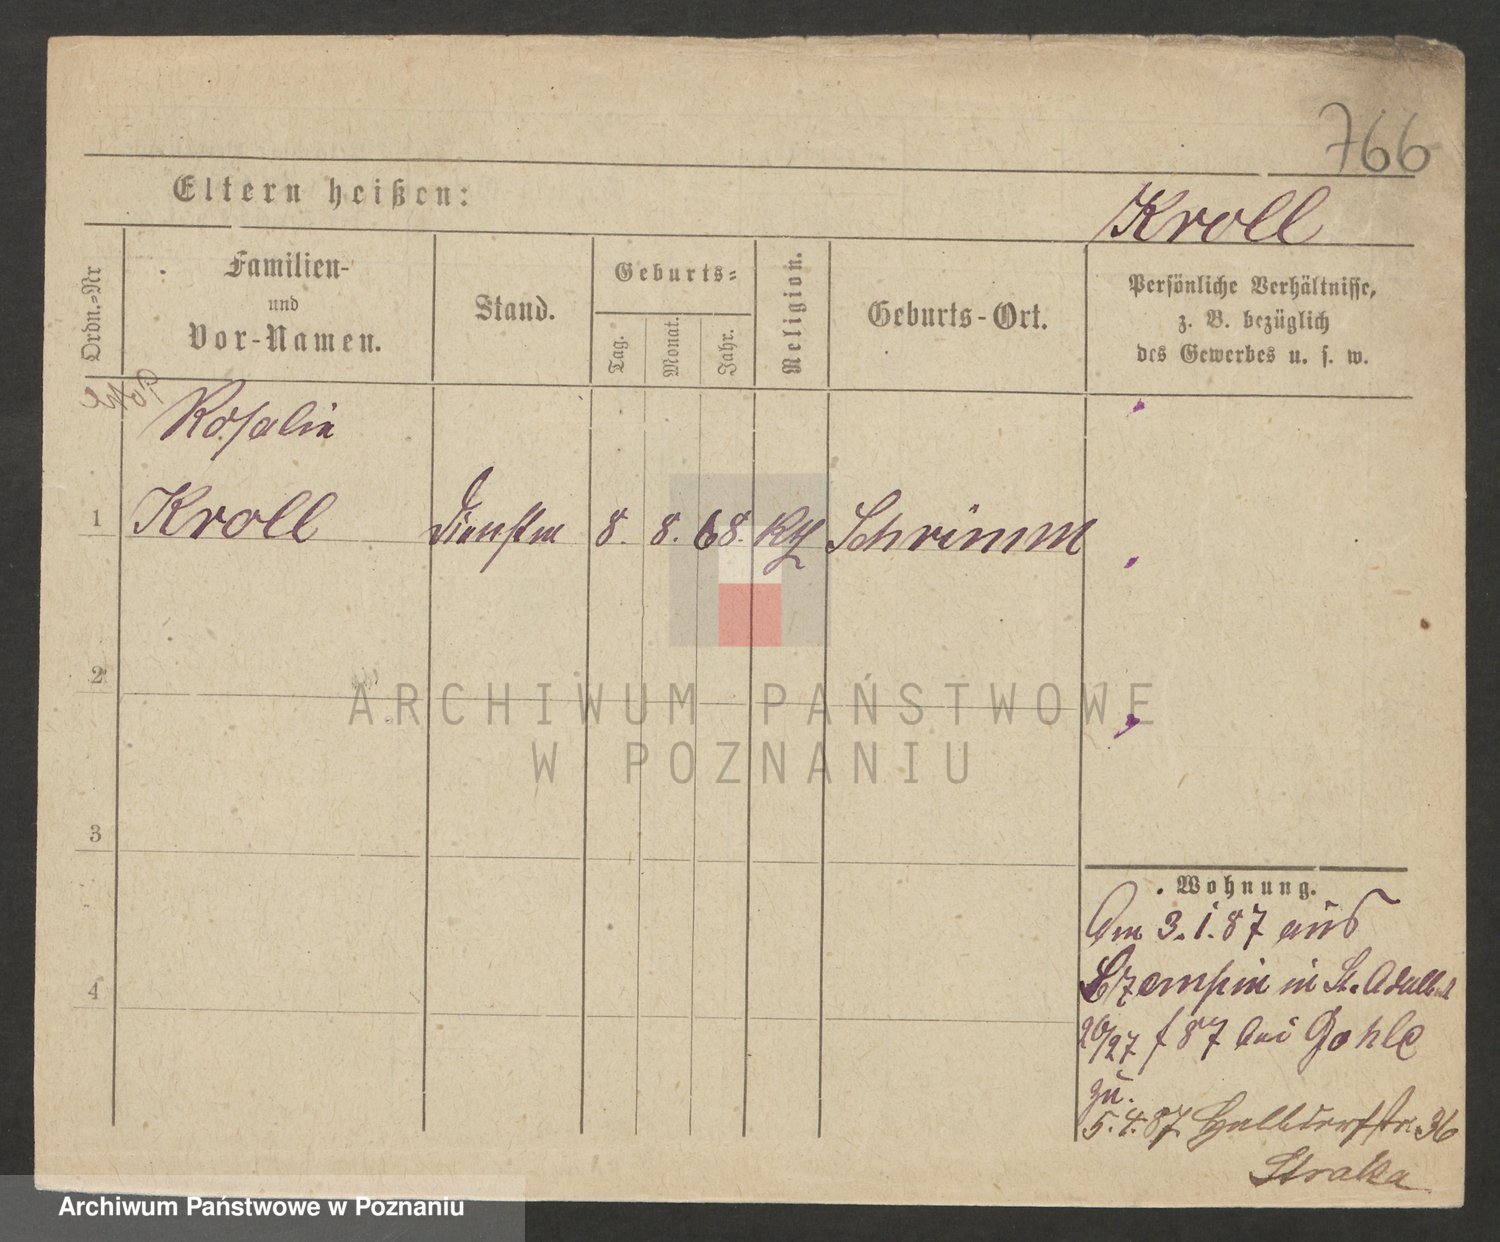 766
Eltern heißen:
Kroll
Ordn.-Nr
Familien-
und
Vor-Namen.
Stand.
Geburts-
Tag.
Monat.
Jahr.
Religion.
Geburts-Ort.
Persönliche Verhältnisse,
z. B. bezüglich
des Gewerbes u. s. w.
Rosalie
1 Kroll Dienstm 8. 8. 68. Kth Schrimm
2
3
4
ARCHIWUM PAŃSTWOWE
W POZNANIU
Wohnung.
Am 3.1.87 aus
Czempin in St. Adalbert
26/27 f 87 bei Gohle
zu.
5.4.87. Halbdorfstr. 36
Straka
Archiwum Państwowe w Poznaniu